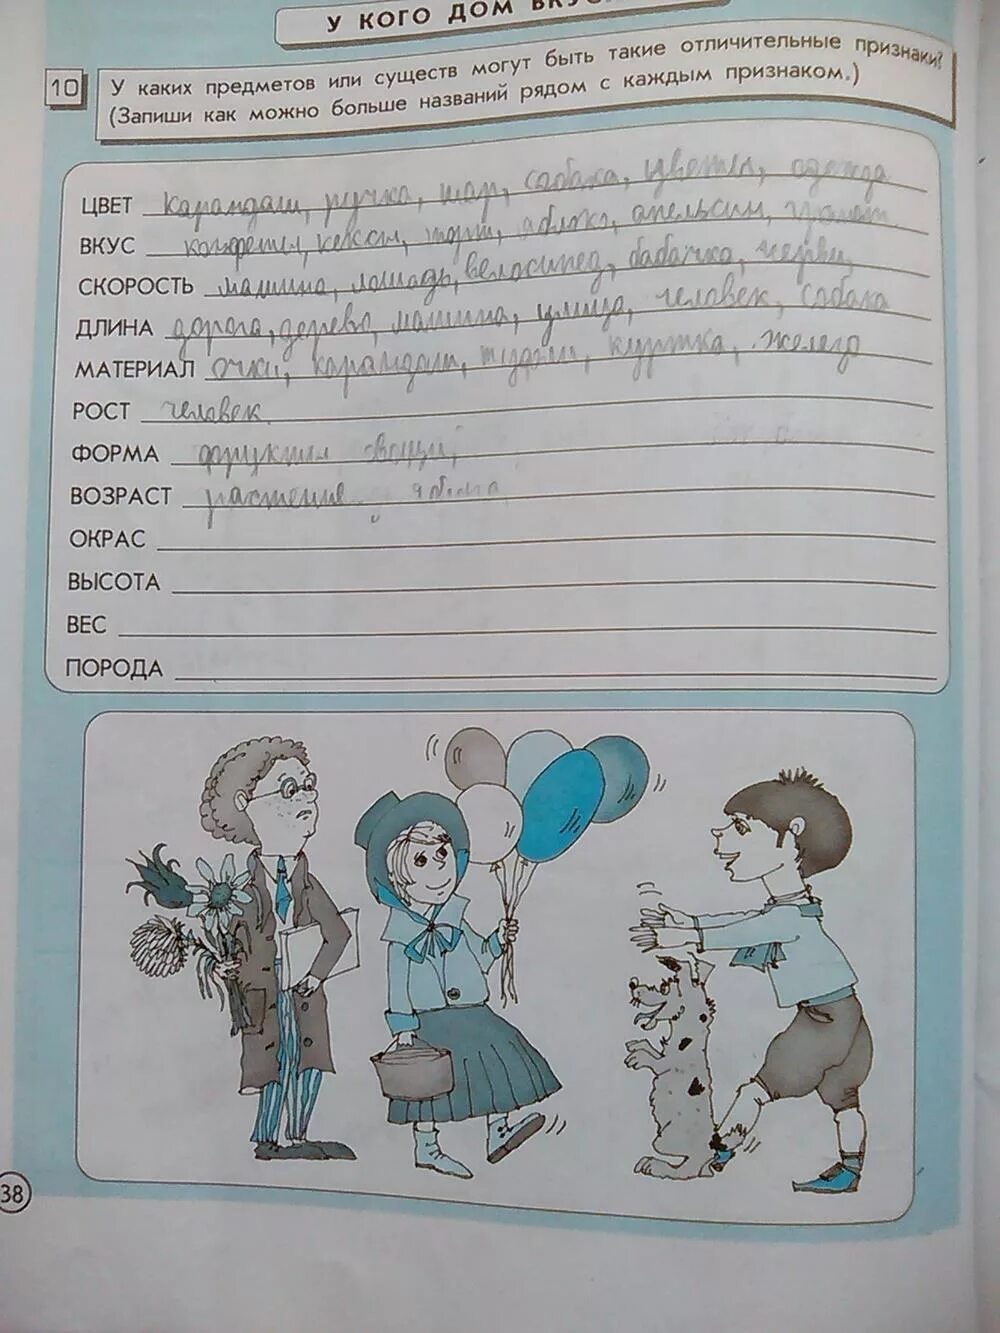 У КОГО ДОМ
10
У каких предметов или существ могут быть такие отличительные признаки?
(Запиши как можно больше названий рядом с каждым признаком.)
ЦВЕТ карандаш, ручка, шар, собака, цветы, одежда
ВКУС конфеты, кексы, торт, яблоко, апельсин,
СКОРОСТЬ машина, лошадь, велосипед, бабачка, черви
ДЛИНА дорога, дерево, машина, улица, человек, собака
МАТЕРИАЛ очки, карандаш, куртка, железо
РОСТ человек
ФОРМА фрукты
ВОЗРАСТ растение
ОКРАС
ВЫСОТА
ВЕС
ПОРОДА
38